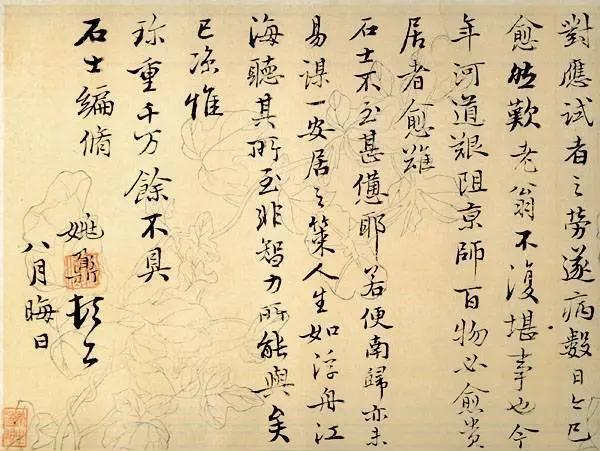 對應試者之勞遂病數日今已
愈然歎老翁不復堪事也今
年河道艱阻京師百物必愈貴
居者愈難
石士不至甚憊耶若便南歸亦未
易謀一安居之策人生如浮舟江
海聽其所至非智力所能與矣
已涼惟
珍重千万餘不具
石士編脩
姚鼐頓首
八月晦日